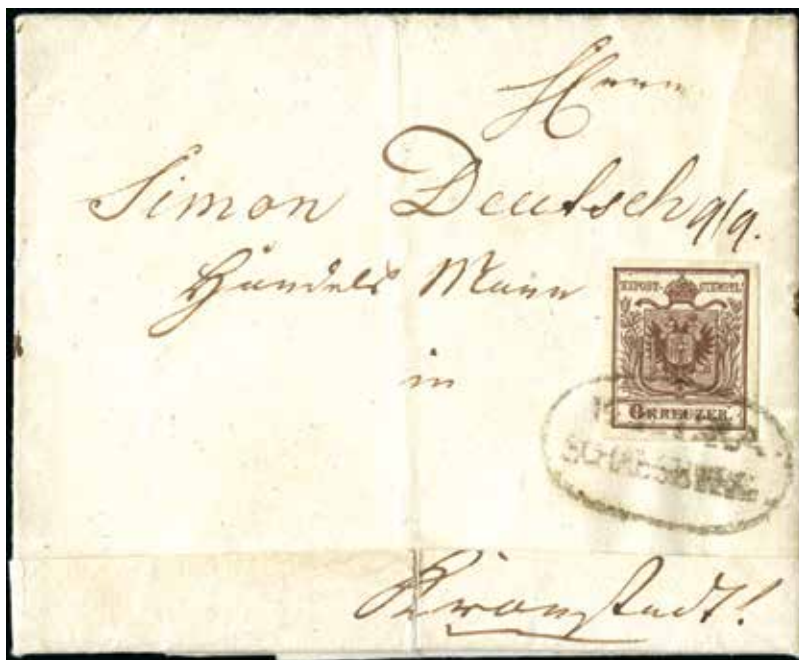 Herrn
Simon Deutsch
Handels Mann
in
KK POST-STEMPEL
6 KREUZER
SCHAESBURG
Kronstadt!